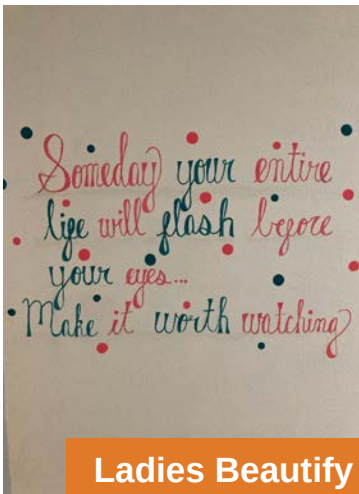 Someday your entire
life will flash before
your eyes...
Make it worth watching
Ladies Beautify